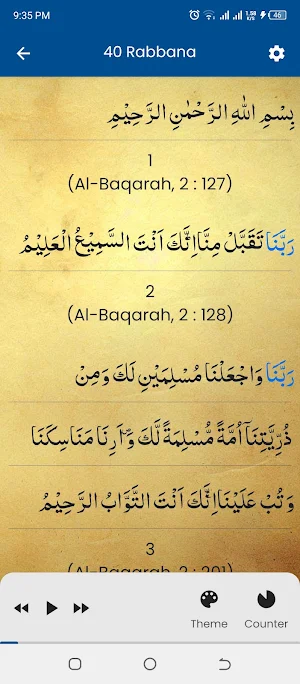 9:35 PM 46
40 Rabbana
بِسْمِ اللهِ الرَّحْمٰنِ الرَّحِيْمِ
1
(Al-Baqarah, 2 : 127)
رَبَّنَا تَقَبَّلْ مِنَّا اِنَّكَ اَنْتَ السَّمِيْعُ الْعَلِيْمُ
2
(Al-Baqarah, 2 : 128)
رَبَّنَا وَاجْعَلْنَا مُسْلِمَيْنِ لَكَ وَمِنْ
ذُرِّيَّتِنَآ اُمَّةً مُّسْلِمَةً لَّكَ وَّاَرِنَا مَنَاسِكَنَا
وَتُبْ عَلَيْنَا اِنَّكَ اَنْتَ التَّوَّابُ الرَّحِيْمُ
3
(Al-Baqarah, 2 : 201)
Theme Counter